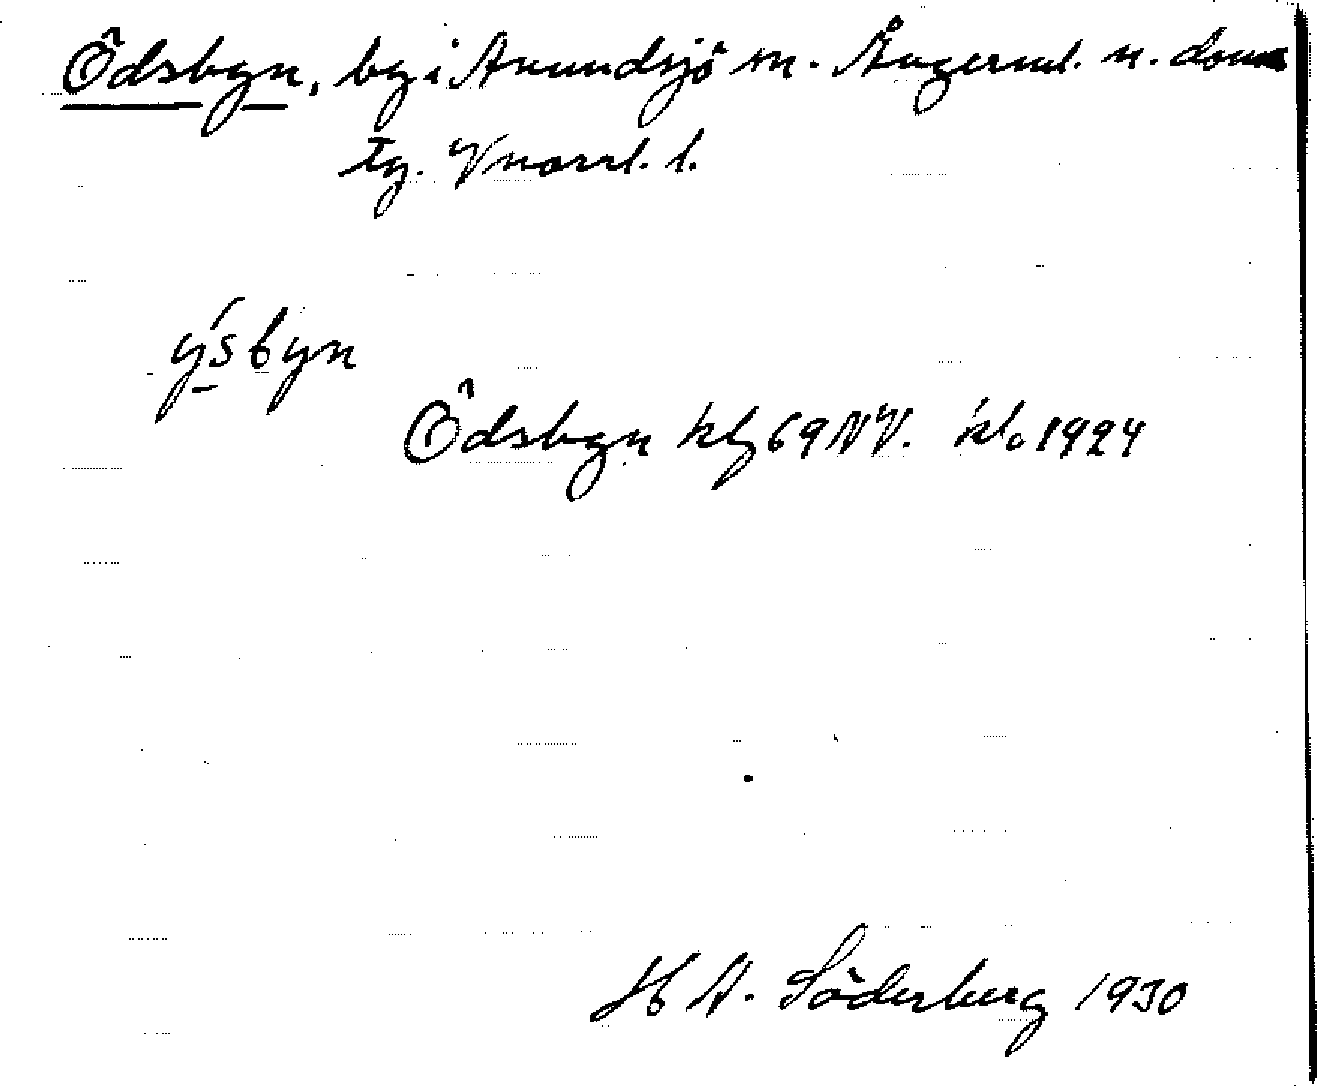 Ödsbyn, by i Anundsjö sn. Ångerml. n. doms
tg. Vnorrl. l.
y´sbyn
Ödsbyn kbl 69 NV. kl. 1924
H A. Söderberg 1930